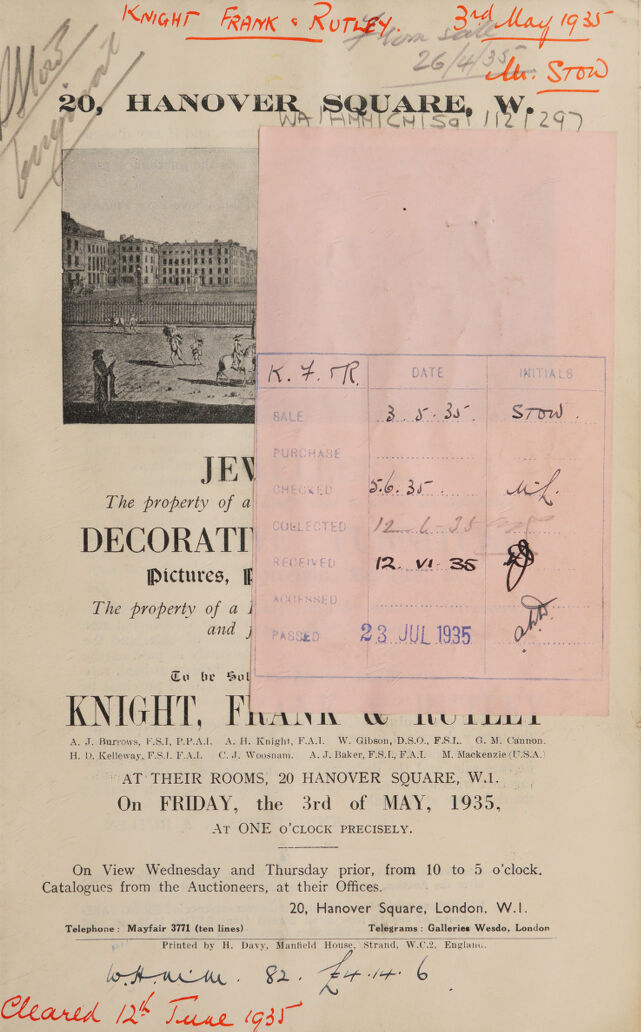 KNIGHT FRANK & RUTLEY. 3rd May 1935
From sale
26/4/35
Mr. STOW
20, HANOVER SQUARE, W.
WA/HMM/CM/Sal/12/297
K. F. & R. DATE INITIALS
SALE 3.5.35 STOW.
PURCHASE
CHECKED 5.6.35.
COLLECTED 12.6.35
RECEIVED 12. VI. 35
ACCESSED
PASSED 23 JUL 1935
JEW
The property of a
DECORATI
Pictures, P
The property of a
and
To be Sol
KNIGHT, FRANK & RUTLEY
A. J. Burrows, F.S.I, P.P.A.I. A. H. Knight, F.A.I. W. Gibson, D.S.O., F.S.I. G. M. Cannon.
H. D. Kelleway, F.S.I. F.A.I. C. J. Woosnam. A. J. Baker, F.S.I., F.A.I. M. Mackenzie (U.S.A.)
AT THEIR ROOMS, 20 HANOVER SQUARE, W.1.
On FRIDAY, the 3rd of MAY, 1935,
AT ONE O'CLOCK PRECISELY.
On View Wednesday and Thursday prior, from 10 to 5 o'clock.
Catalogues from the Auctioneers, at their Offices.
20, Hanover Square, London, W.1.
Telephone: Mayfair 3771 (ten lines) Telegrams: Galleries Wesdo, London
Printed by H. Davy, Manfield House, Strand, W.C.2, England.
W.H.M.M. 82. £4.14.6
Cleared 12th June 1935